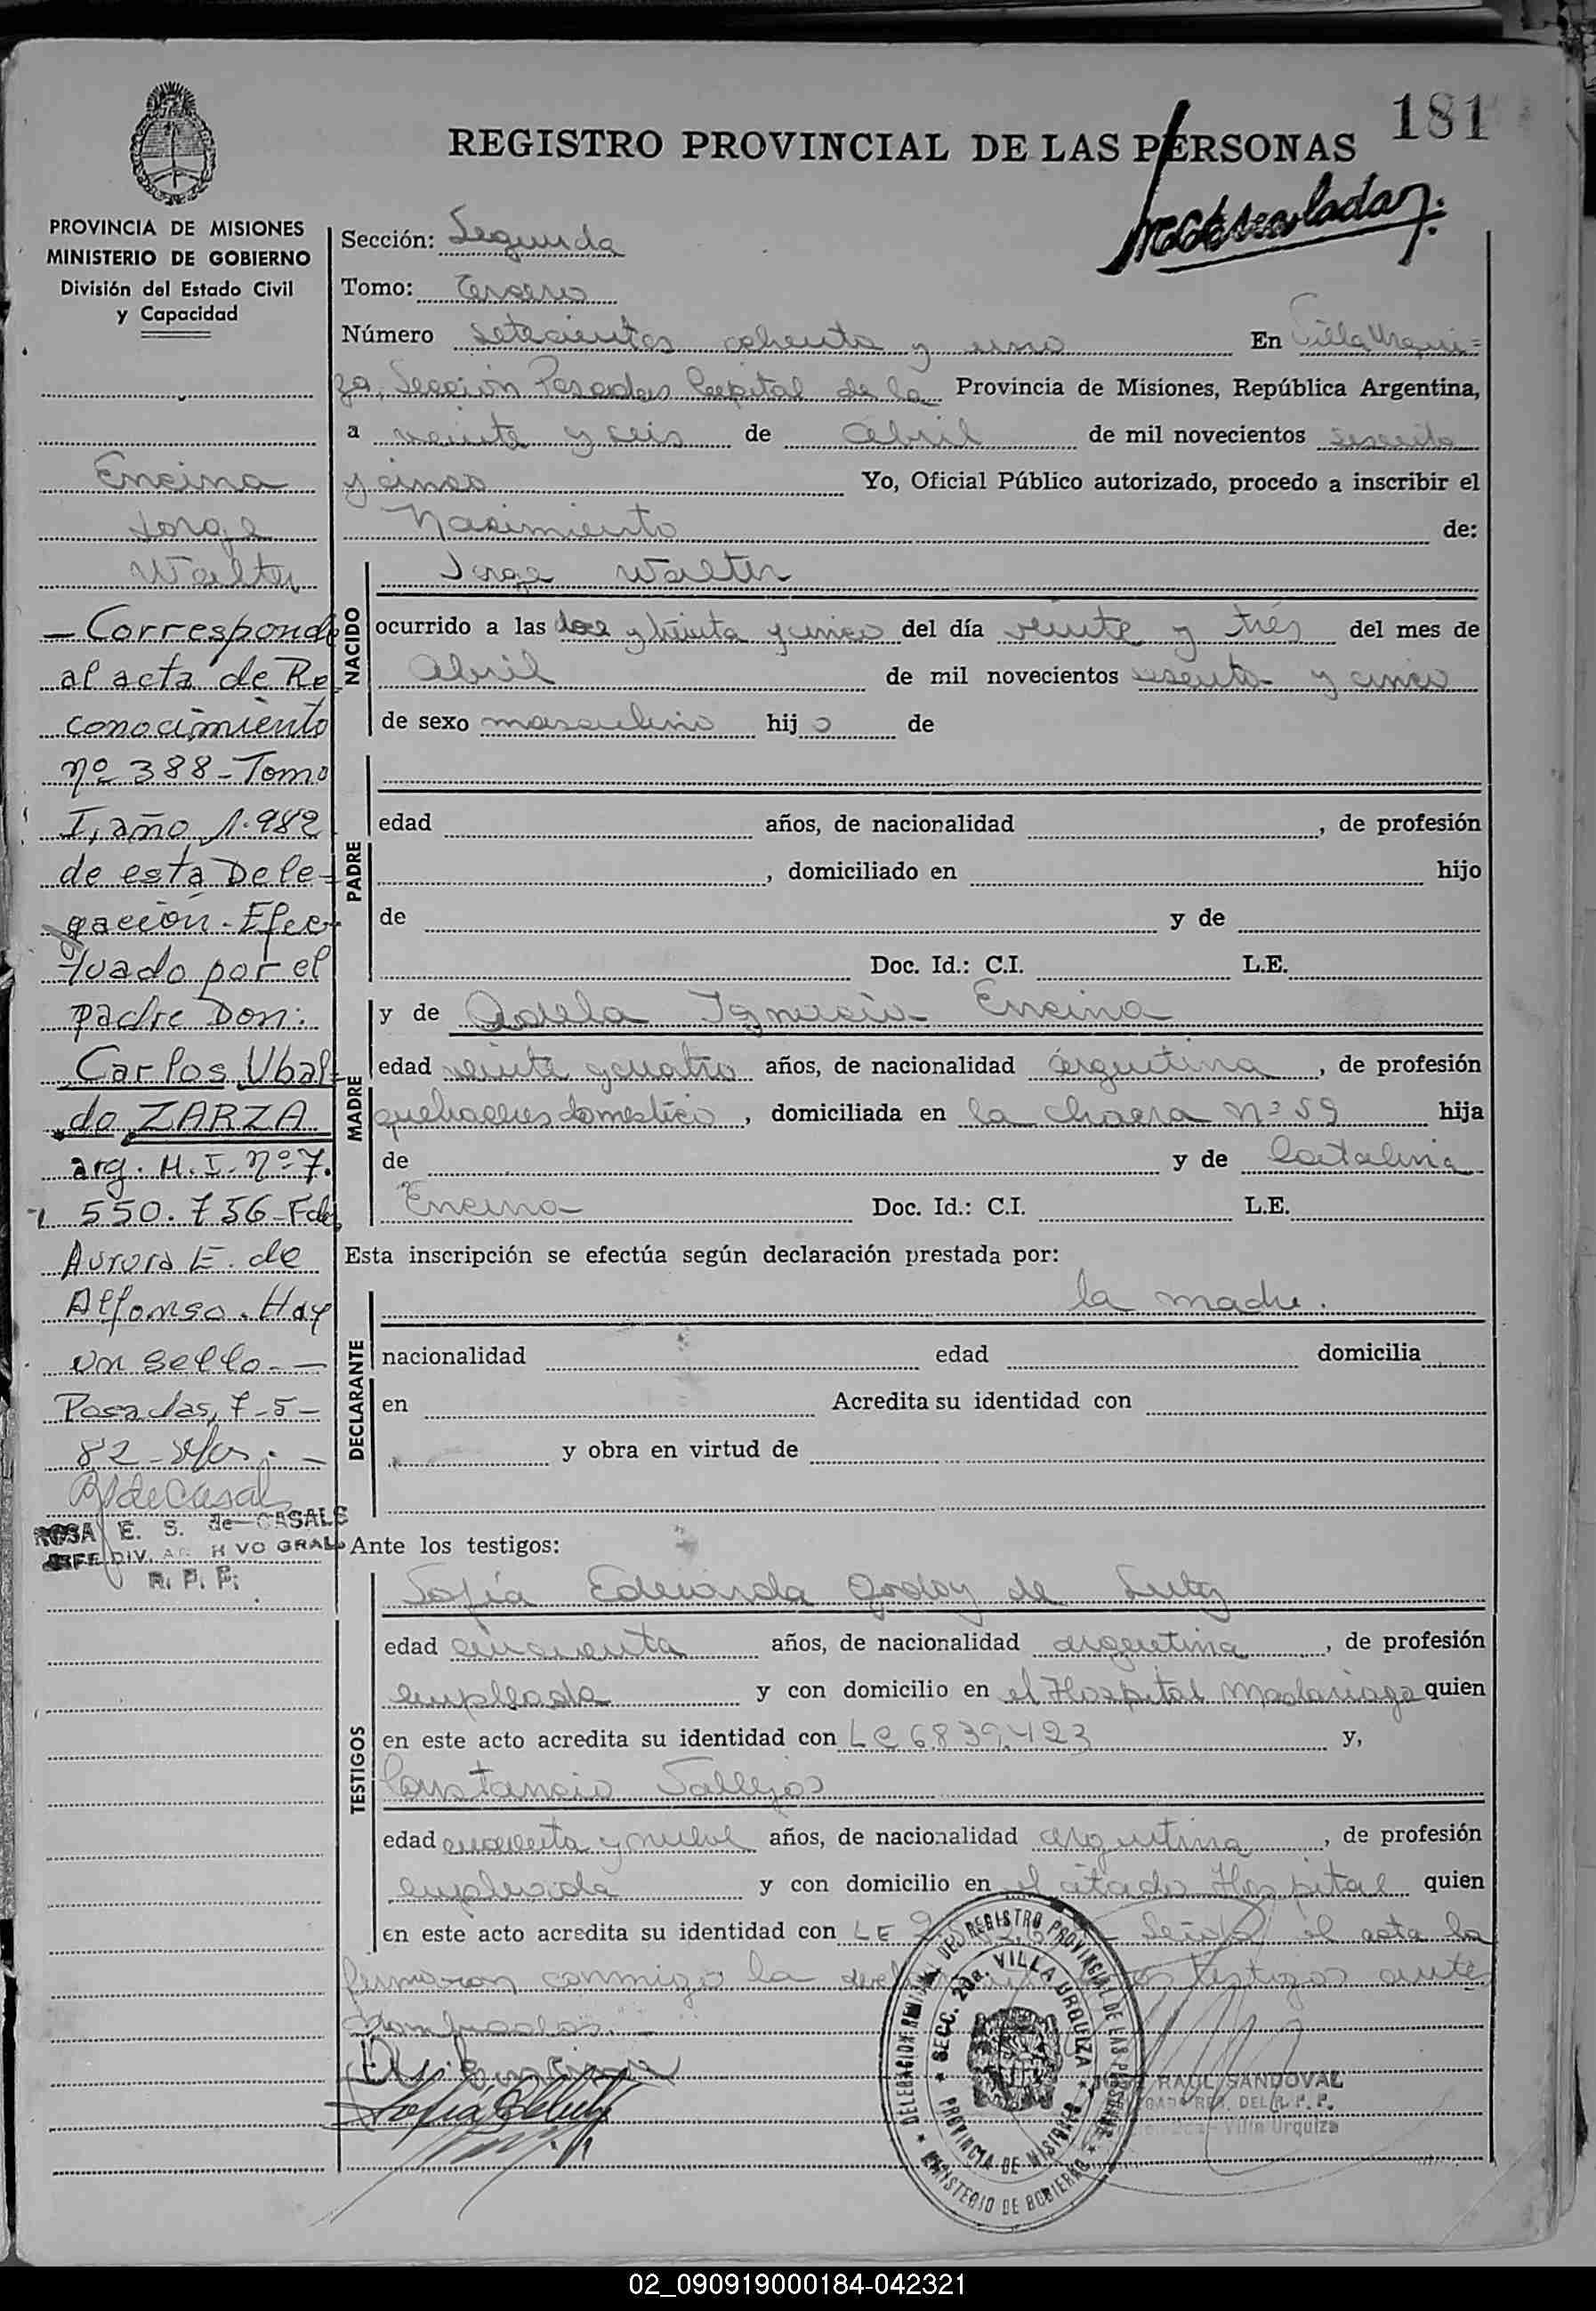 181
REGISTRO PROVINCIAL DE LAS PERSONAS
PROVINCIA DE MISIONES
MINISTERIO DE GOBIERNO
División del Estado Civil
y Capacidad
Encina
Jorge
Walter
— Corresponde
al acta de Re
conocimiento
nº 388 - Tomo
I, año 1.982
de esta Dele-
gación - Efec-
tuado por el
padre Don:
Carlos Ubal-
do ZARZA
arg. M. I. Nº 7.
550.756 - Fdo
Aurora E. de
Alfonso. Hay
un sello. —
Posadas, 7-5-
82
ROSA E. S. de CASALS
JEFE DIV. GRAL
R. P. P.
Sección: Segunda
Tomo: Tercero
Número setecientos ochenta y uno En Villa Urqui=
za, Sección Posadas Capital de la Provincia de Misiones, República Argentina,
a veinte y seis de Abril de mil novecientos sesenta
y cinco Yo, Oficial Público autorizado, procedo a inscribir el
Nacimiento de:
NACIDO
Jorge Walter
ocurrido a las dos y treinta y cinco del día veinte y tres del mes de
Abril de mil novecientos sesenta y cinco
de sexo masculino hijo de
PADRE
edad años, de nacionalidad , de profesión
, domiciliado en hijo
de y de
Doc. Id.: C.I. L.E.
MADRE
y de Adela Ignacia Encina
edad veinte y cuatro años, de nacionalidad argentina , de profesión
quehaceres domestico , domiciliada en la chacra Nº 59 hija
de y de Catalina
Encina Doc. Id.: C.I. L.E.
Esta inscripción se efectúa según declaración prestada por:
la madre.
DECLARANTE
nacionalidad edad domicilia
en Acredita su identidad con
y obra en virtud de
Ante los testigos:
TESTIGOS
Sofía Eduarda Godoy de Lutz
edad cincuenta años, de nacionalidad argentina , de profesión
empleada y con domicilio en el Hospital Madariaga quien
en este acto acredita su identidad con LC 6.839.423 y,
Constancio Vallejos
edad cuarenta y nueve años, de nacionalidad argentina , de profesión
empleada y con domicilio en el citado Hospital quien
en este acto acredita su identidad con LE el acta la
firmaron conmigo la testigos ante
nombrados.
DELEGACION REGIONAL DEL REGISTRO PROVINCIAL DE LAS PERSONAS
SECC. 2da. VILLA URQUIZA
PROVINCIA DE MISIONES
MINISTERIO DE GOBIERNO
RAUL SANDOVAL
DEL R. P. P.
Villa Urquiza
02_090919000184-042321